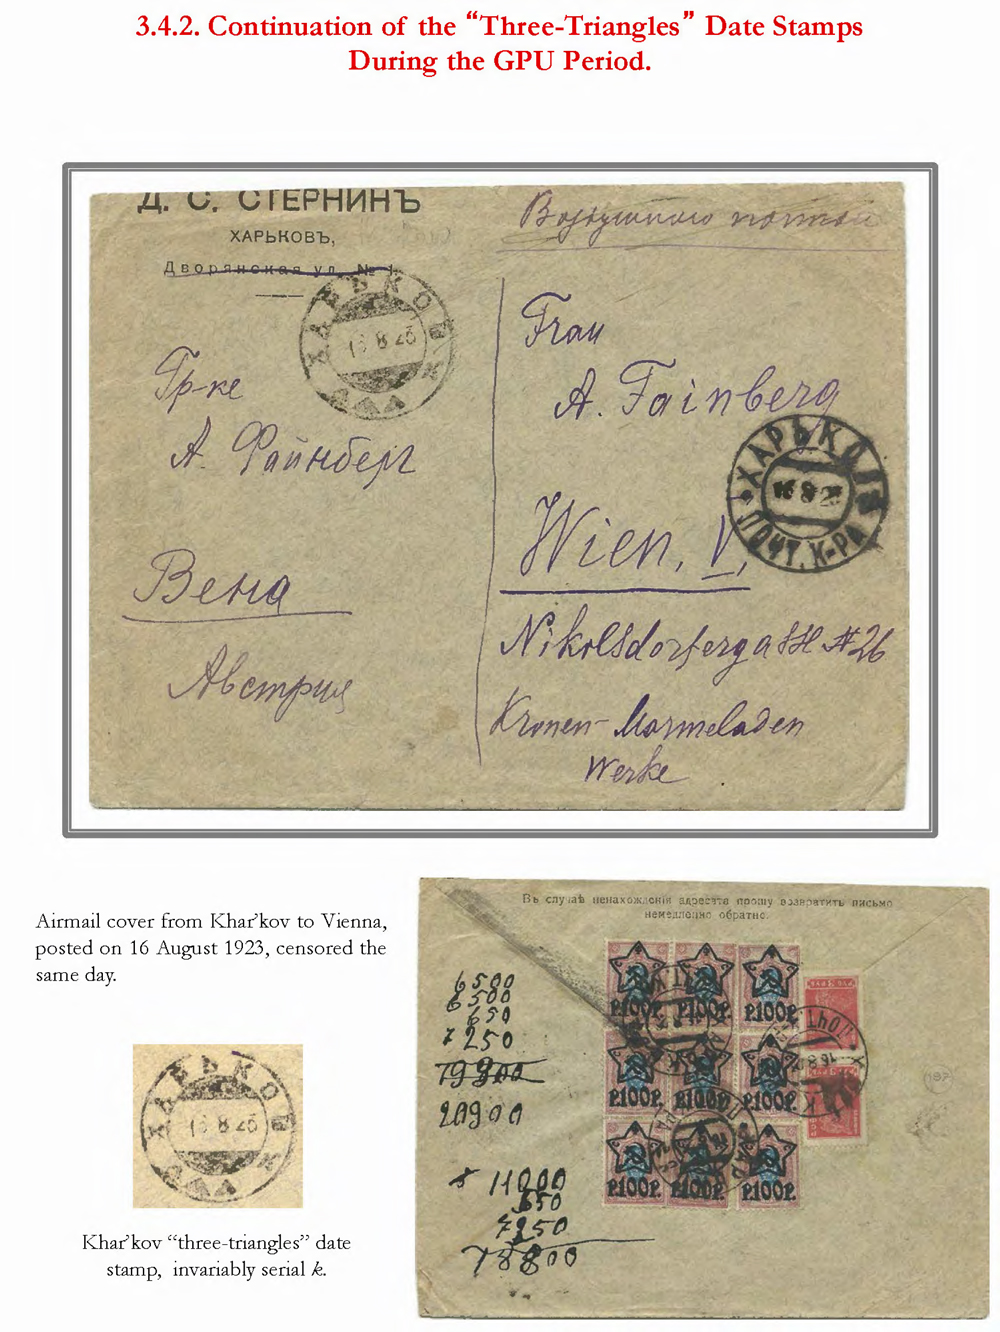 3.4.2. Continuation of the “Three-Triangles” Date Stamps
During the GPU Period.
Д. С. СТЕРНИНЪ
ХАРЬКОВЪ,
Дворянская ул. № 1.
Воздушного почтой
ХАРЬКОВ
16 8 23
к
Гр-ке
А. Файнберг
Вена
Австрия
Frau
A. Fainberg
Wien, V,
Nikolsdorfergasse #26
Kronen-Marmeladen
Werke
ХАРЬКОВ
16 8 23
ПОЧТ. К-РА
Airmail cover from Khar’kov to Vienna,
posted on 16 August 1923, censored the
same day.
ХАРЬКОВ
16 8 23
к
Khar’kov “three-triangles” date
stamp, invariably serial k.
Въ случаѣ ненахожденія адресата прошу возвратить письмо
немедленно обратно.
6500
6500
650
7250
20900
11000
650
7250
18800
Р.100Р. Р.100Р. Р.100Р.
Р.100Р. Р.100Р. Р.100Р.
Р.100Р. Р.100Р. Р.100Р.